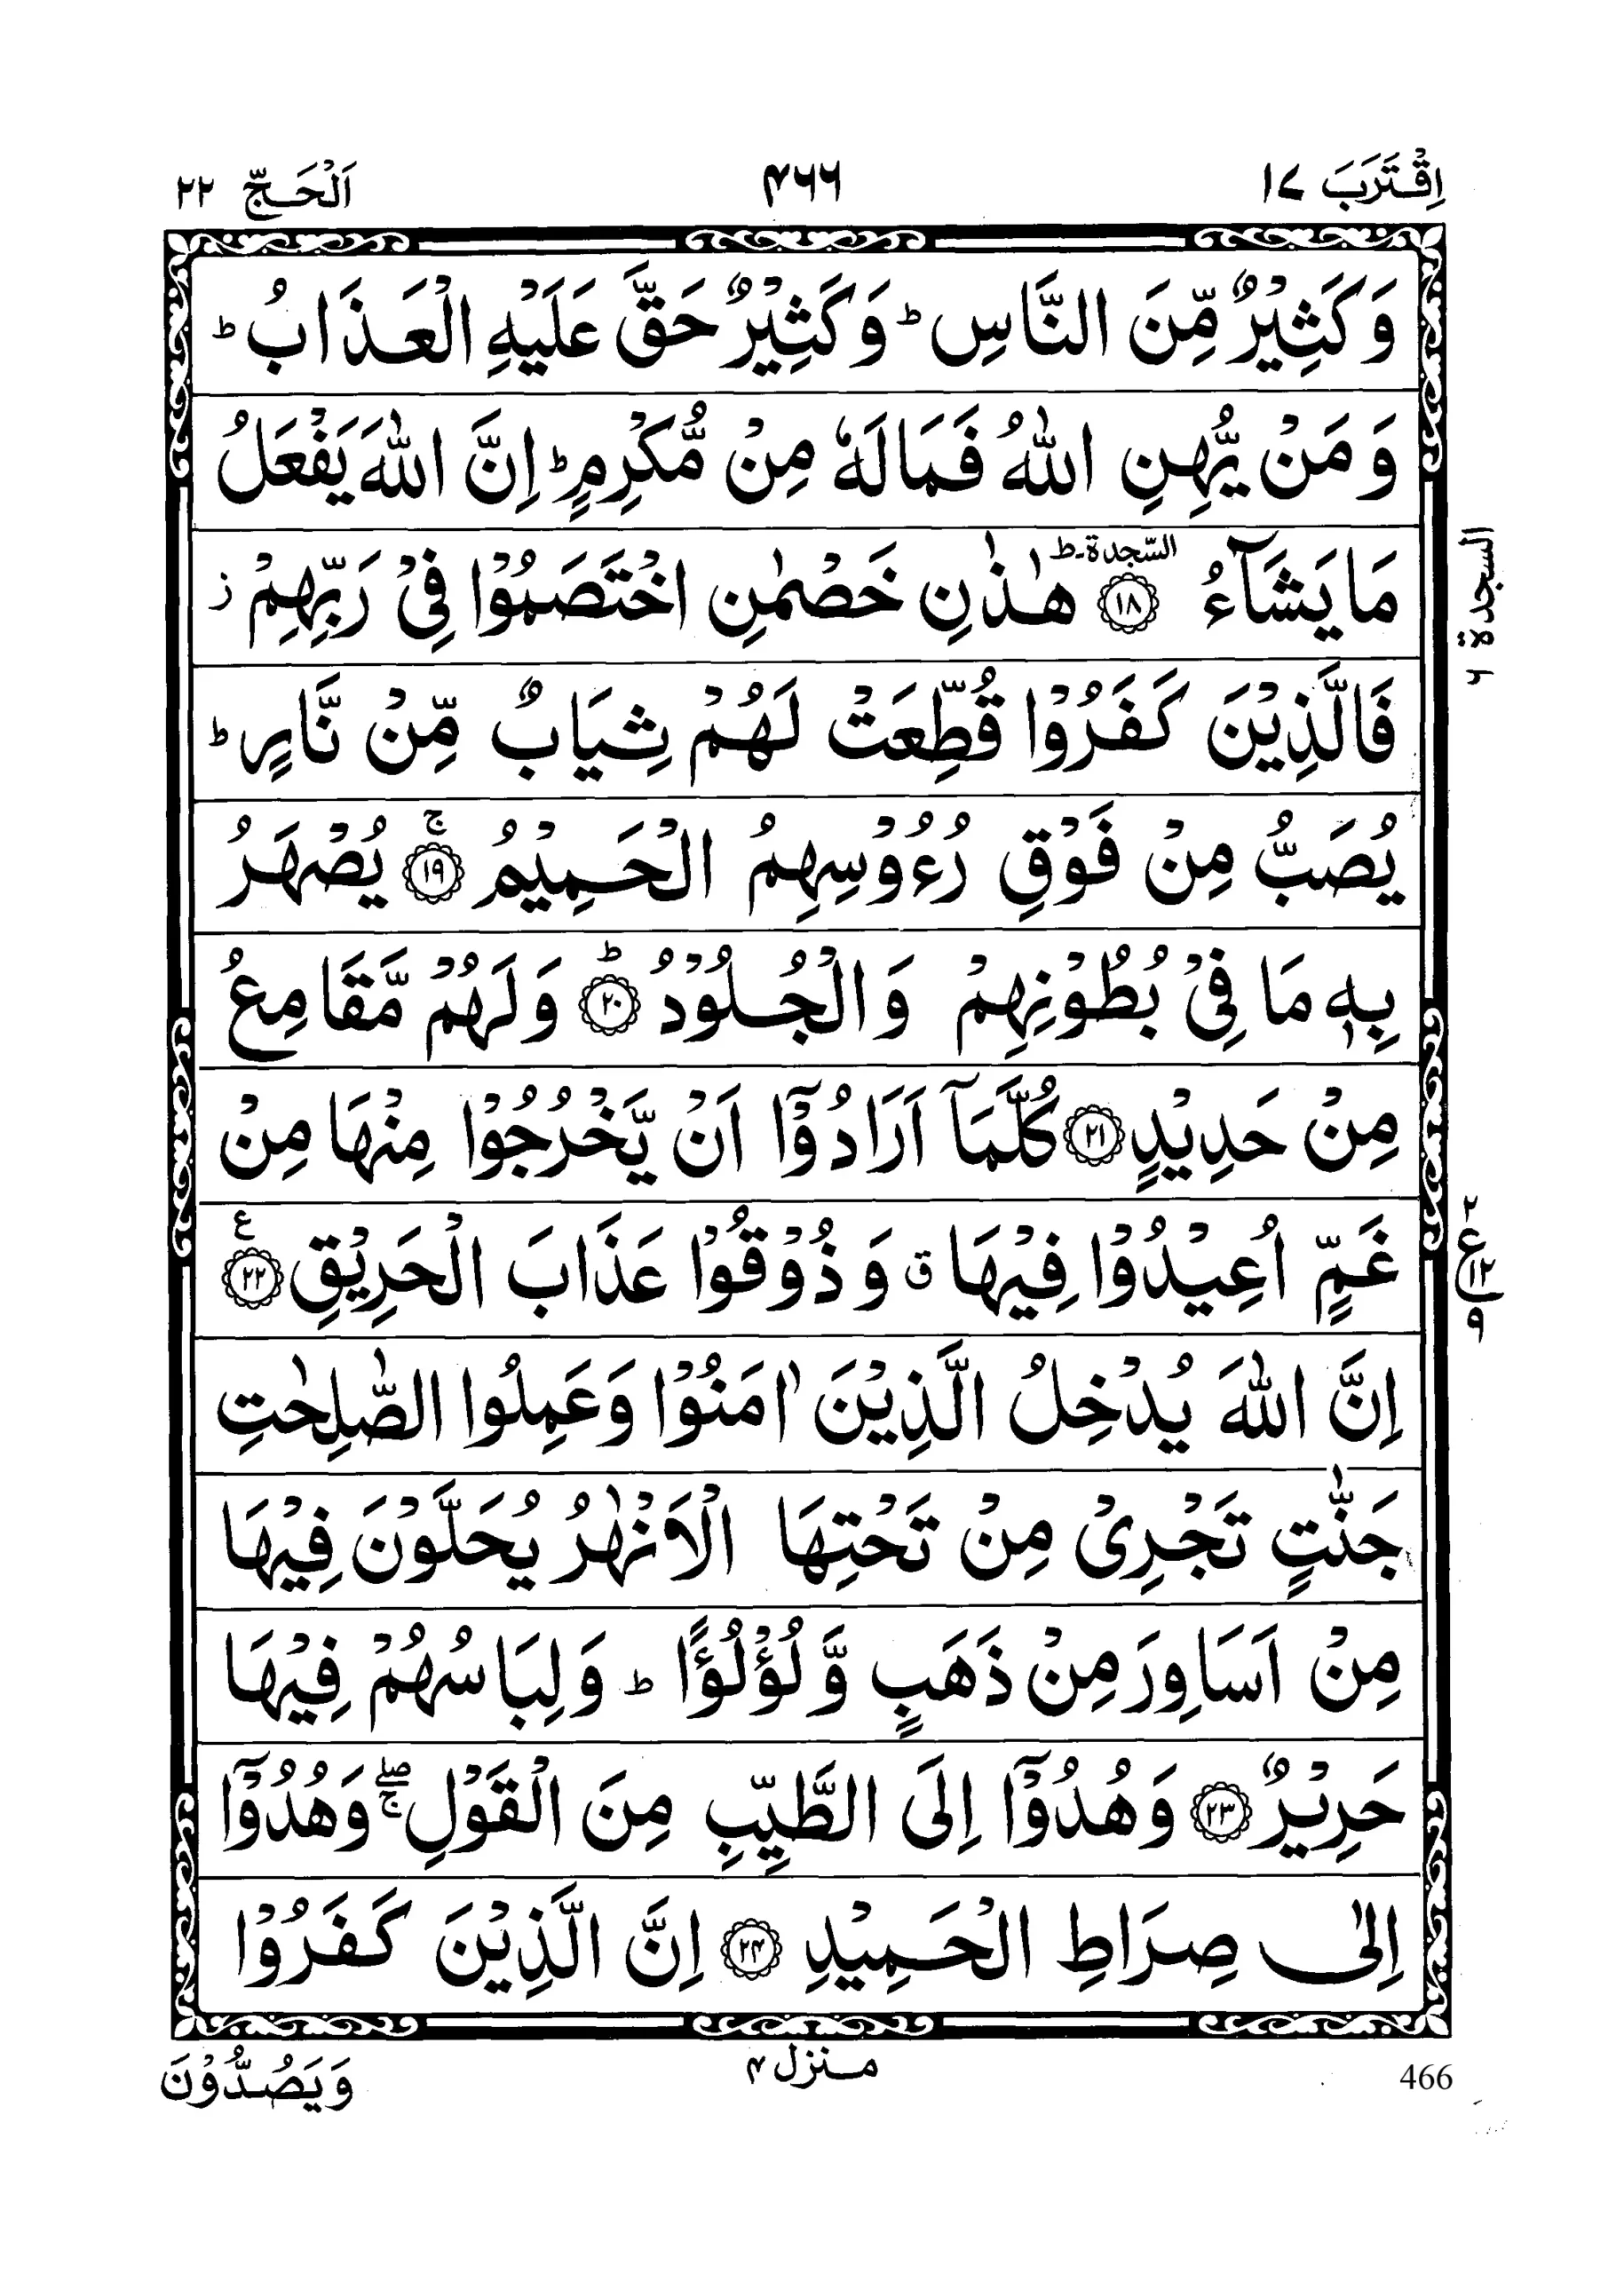 اِقْتَرَبَ ١٧ ٤٦٦ اَلْحَـجّ ٢٢
وَكَثِيْرٌ مِّنَ النَّاسِ ؕ وَكَثِيْرٌ حَقَّ عَلَيْهِ الْعَذَابُ ؕ
وَ مَنْ يُّهِنِ اللّٰهُ فَمَالَهٗ مِنْ مُّكْرِمٍ ؕ اِنَّ اللّٰهَ يَفْعَلُ
مَا يَشَآءُ ۝١٨ السّجدة ط هٰذٰنِ خَصْمٰنِ اخْتَصَمُوْا فِيْ رَبِّهِمْ ز
فَالَّذِيْنَ كَفَرُوْا قُطِّعَتْ لَهُمْ ثِيَابٌ مِّنْ نَّارٍ ؕ
يُصَبُّ مِنْ فَوْقِ رُءُوْسِهِمُ الْحَمِيْمُ ۝١٩ ج يُصْهَرُ
بِهٖ مَا فِيْ بُطُوْنِهِمْ وَالْجُلُوْدُ ۝٢٠ ؕ وَلَهُمْ مَّقَامِعُ
مِنْ حَدِيْدٍ ۝٢١ كُلَّمَاۤ اَرَادُوْۤا اَنْ يَّخْرُجُوْا مِنْهَا مِنْ
غَمٍّ اُعِيْدُوْا فِيْهَا ق وَ ذُوْقُوْا عَذَابَ الْحَرِيْقِ ۝٢٢ ع
اِنَّ اللّٰهَ يُدْخِلُ الَّذِيْنَ اٰمَنُوْا وَعَمِلُوا الصّٰلِحٰتِ
جَنّٰتٍ تَجْرِيْ مِنْ تَحْتِهَا الْاَنْهٰرُ يُحَلَّوْنَ فِيْهَا
مِنْ اَسَاوِرَ مِنْ ذَهَبٍ وَّ لُؤْلُؤًا ؕ وَلِبَاسُهُمْ فِيْهَا
حَرِيْرٌ ۝٢٣ وَهُدُوْۤا اِلَى الطَّيِّبِ مِنَ الْقَوْلِ ۖۚ وَهُدُوْۤا
اِلٰى صِرَاطِ الْحَمِيْدِ ۝٢٤ اِنَّ الَّذِيْنَ كَفَرُوْا
السجدة ٦
٢ ع ١٢ ٩
وَيَصُدُّوْنَ منزل ٤ 466